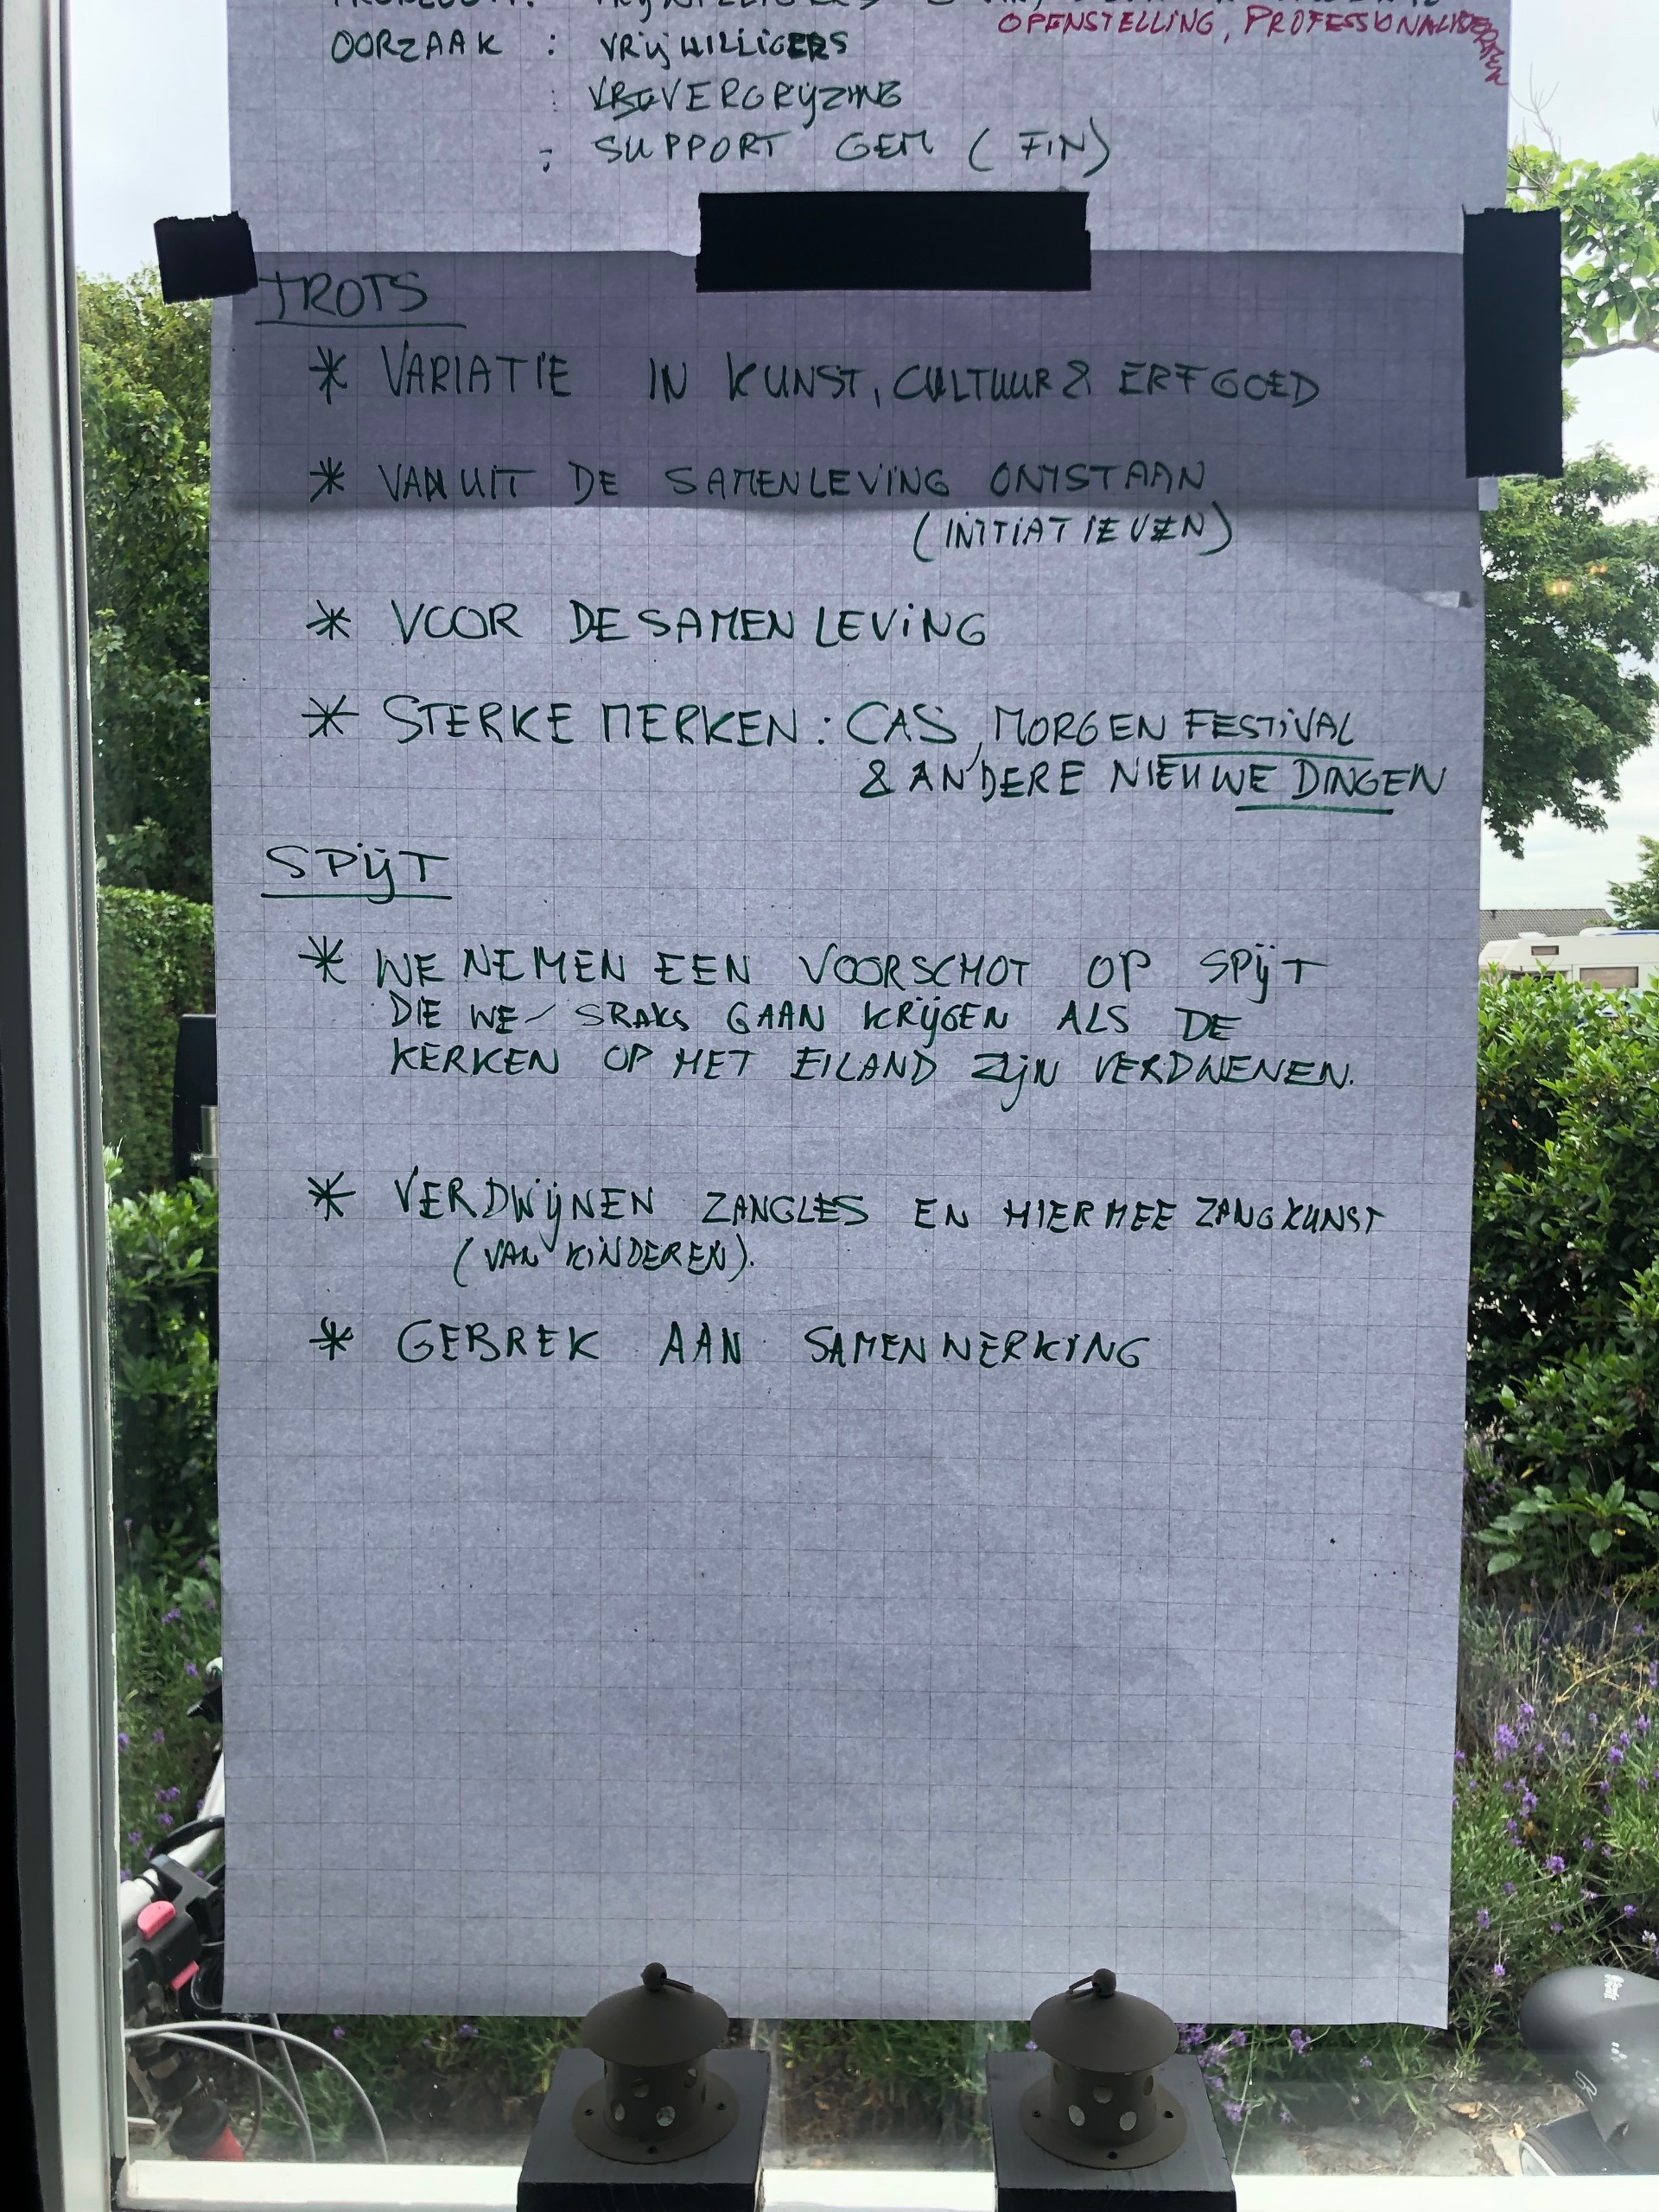 OPENSTELLING, PROFESSIONALISEREN
OORZAAK : VRIJWILLIGERS
: VERGRIJZING
: SUPPORT GEM (FIN)
TROTS
* VARIATIE IN KUNST, CULTUUR & ERFGOED
* VANUIT DE SAMENLEVING ONTSTAAN
(INITIATIEVEN)
* VOOR DE SAMENLEVING
* STERKE MERKEN: CAS, MORGEN FESTIVAL
& ANDERE NIEUWE DINGEN
SPIJT
* WE NEMEN EEN VOORSCHOT OP SPIJT
DIE WE SRAKS GAAN KRIJGEN ALS DE
KERKEN OP HET EILAND ZIJN VERDWENEN.
* VERDWIJNEN ZANGLES EN HIERMEE ZANGKUNST
(VAN KINDEREN).
* GEBREK AAN SAMENWERKING